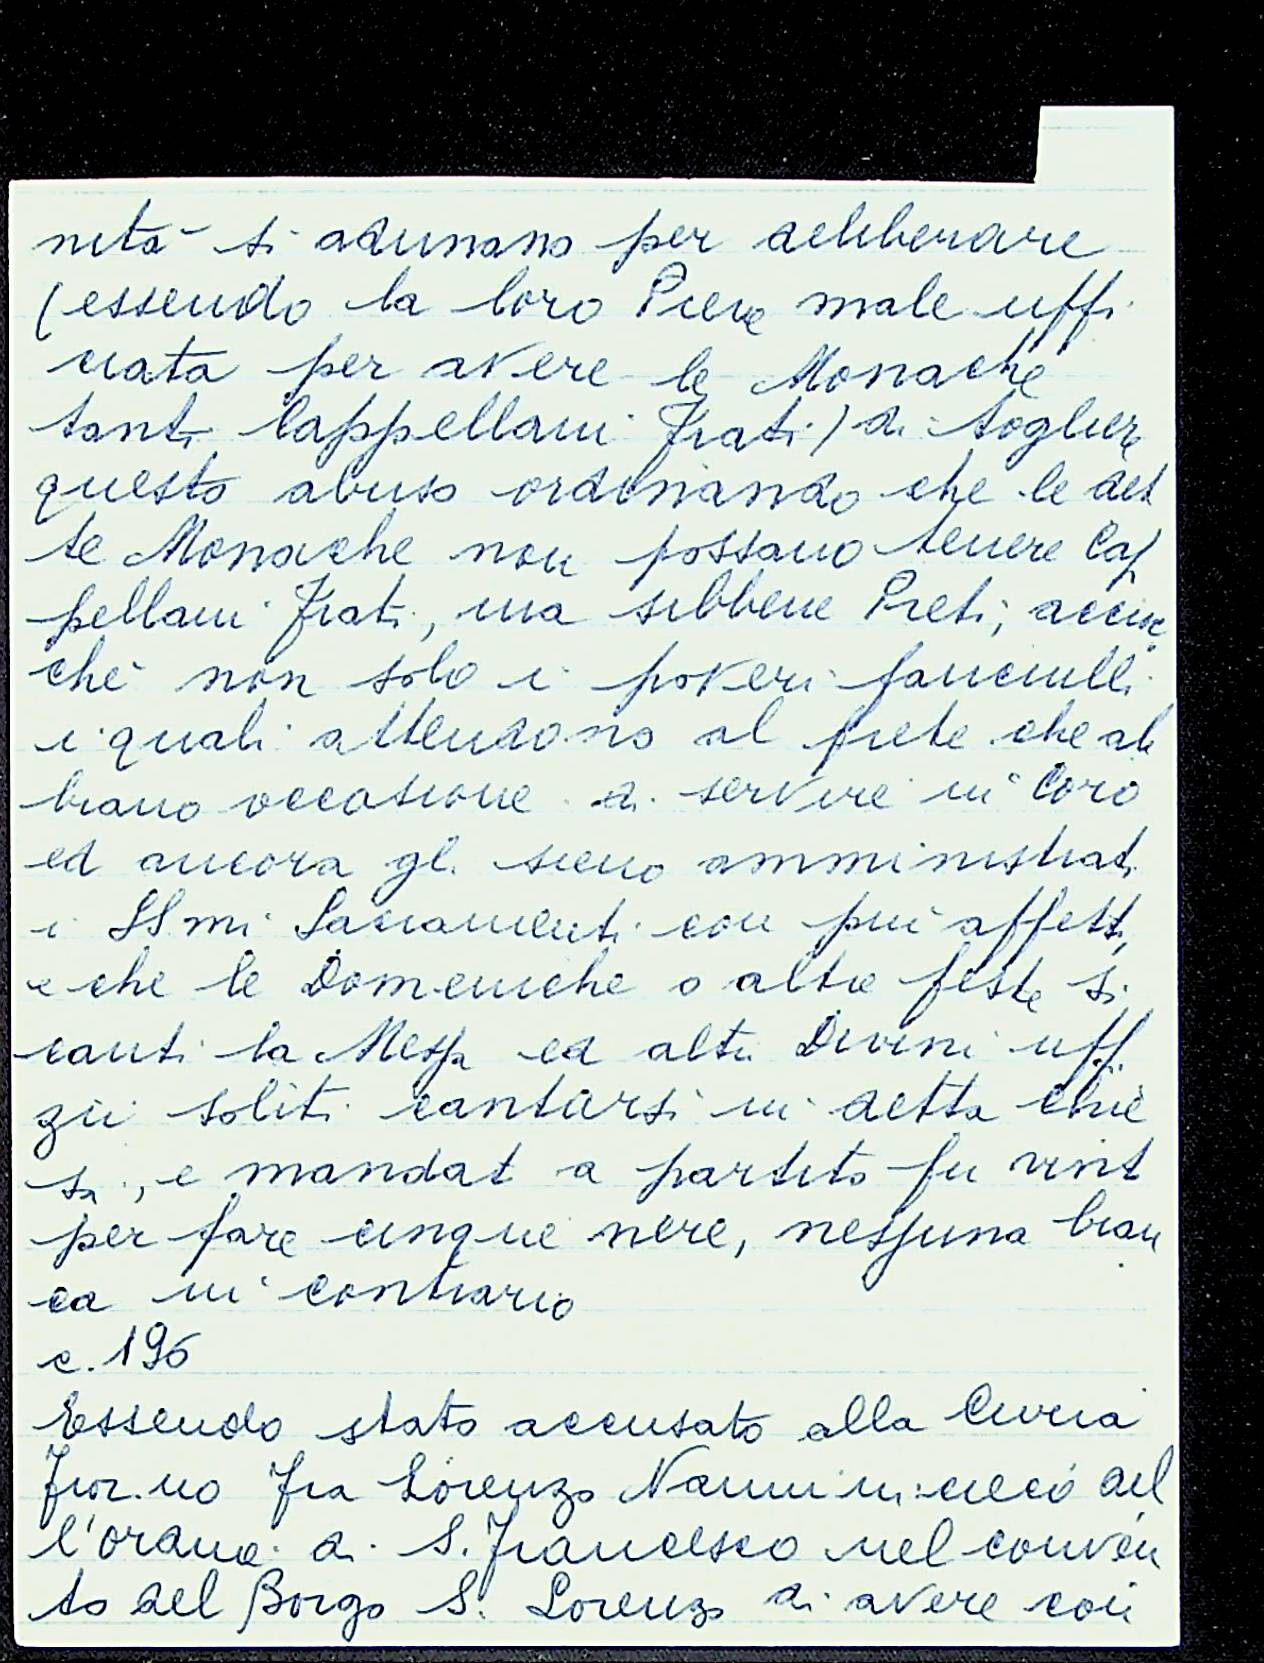 nità si adunano per deliberare
(essendo la loro Pieve male uffi
ciata per avere le Monache
tanti Cappellani Frati) di togliere
questo abuso ordinando che le det
te Monache non possano tenere Cap
pellani Frati, ma sibbene Preti; accioc
ché non solo i poveri fanciulli
i quali attendono al prete che ab
biano occasione di servire in Coro
ed ancora gli sieno amministrati
i SSmi Sacramenti con più affetti,
e che le Domeniche o altre feste si
canti la Messa ed altri Divini uffi
zii soliti cantarsi in detta chie
sa, e mandat a partito fu vint
per fare cinque nere, nessuna bian
ca in contrario
c. 196
Essendo stato accusato alla Curia
Fior.no Fra Lorenzo Nannini cieco del
l'ordine di S. Francesco nel conven
to del Borgo S. Lorenzo di avere con